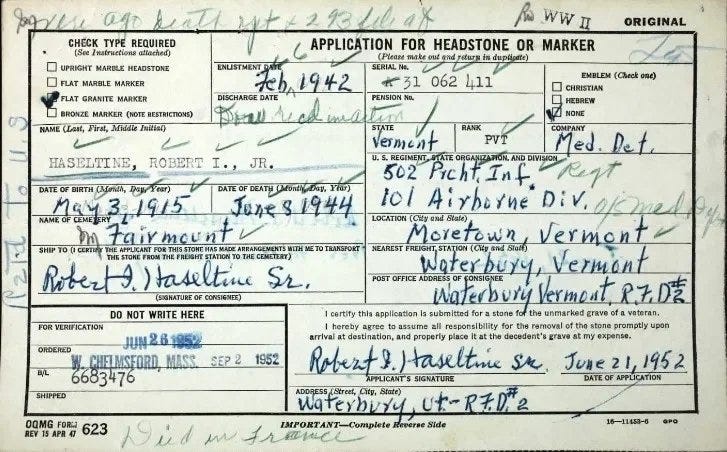 death rpt & 293 file
WW II
ORIGINAL
CHECK TYPE REQUIRED
(See Instructions attached)
UPRIGHT MARBLE HEADSTONE
FLAT MARBLE MARKER
FLAT GRANITE MARKER
BRONZE MARKER (NOTE RESTRICTIONS)
APPLICATION FOR HEADSTONE OR MARKER
(Please make out and return in duplicate)
ENLISTMENT DATE
Feb, 1942
6
DISCHARGE DATE
SERIAL No.
31 062 411
PENSION No.
EMBLEM (Check one)
CHRISTIAN
HEBREW
NONE
NAME (Last, First, Middle Initial)
HASELTINE, ROBERT I., JR.
STATE
Vermont
RANK
PVT
COMPANY
Med. Det.
U. S. REGIMENT, STATE ORGANIZATION, AND DIVISION
502 Prcht. Inf. Regt
101 Airborne Div.
DATE OF BIRTH (Month, Day, Year)
May 3, 1915
DATE OF DEATH (Month, Day, Year)
June 8 1944
NAME OF CEMETERY
Fairmount
LOCATION (City and State)
Moretown, Vermont
SHIP TO (I CERTIFY THE APPLICANT FOR THIS STONE HAS MADE ARRANGEMENTS WITH ME TO TRANSPORT
THE STONE FROM THE FREIGHT STATION TO THE CEMETERY)
Robert I. Haseltine Sr.
(SIGNATURE OF CONSIGNEE)
NEAREST FREIGHT STATION (City and State)
Waterbury, Vermont
POST OFFICE ADDRESS OF CONSIGNEE
Waterbury Vermont, R.F.D #2
Ret'd To U.S
DO NOT WRITE HERE
FOR VERIFICATION
JUN 26 1952
ORDERED
W. CHELMSFORD, MASS. SEP 2 1952
B/L
6683476
SHIPPED
I certify this application is submitted for a stone for the unmarked grave of a veteran.
I hereby agree to assume all responsibility for the removal of the stone promptly upon
arrival at destination, and properly place it at the decedent's grave at my expense.
Robert I. Haseltine Sr. June 21, 1952
APPLICANT'S SIGNATURE
DATE OF APPLICATION
ADDRESS (Street, City, State)
Waterbury, Vt- R.F.D. #2
OQMG FORM
REV 15 APR 47
623
IMPORTANT—Complete Reverse Side
16—11453-6 GPO
Died in France